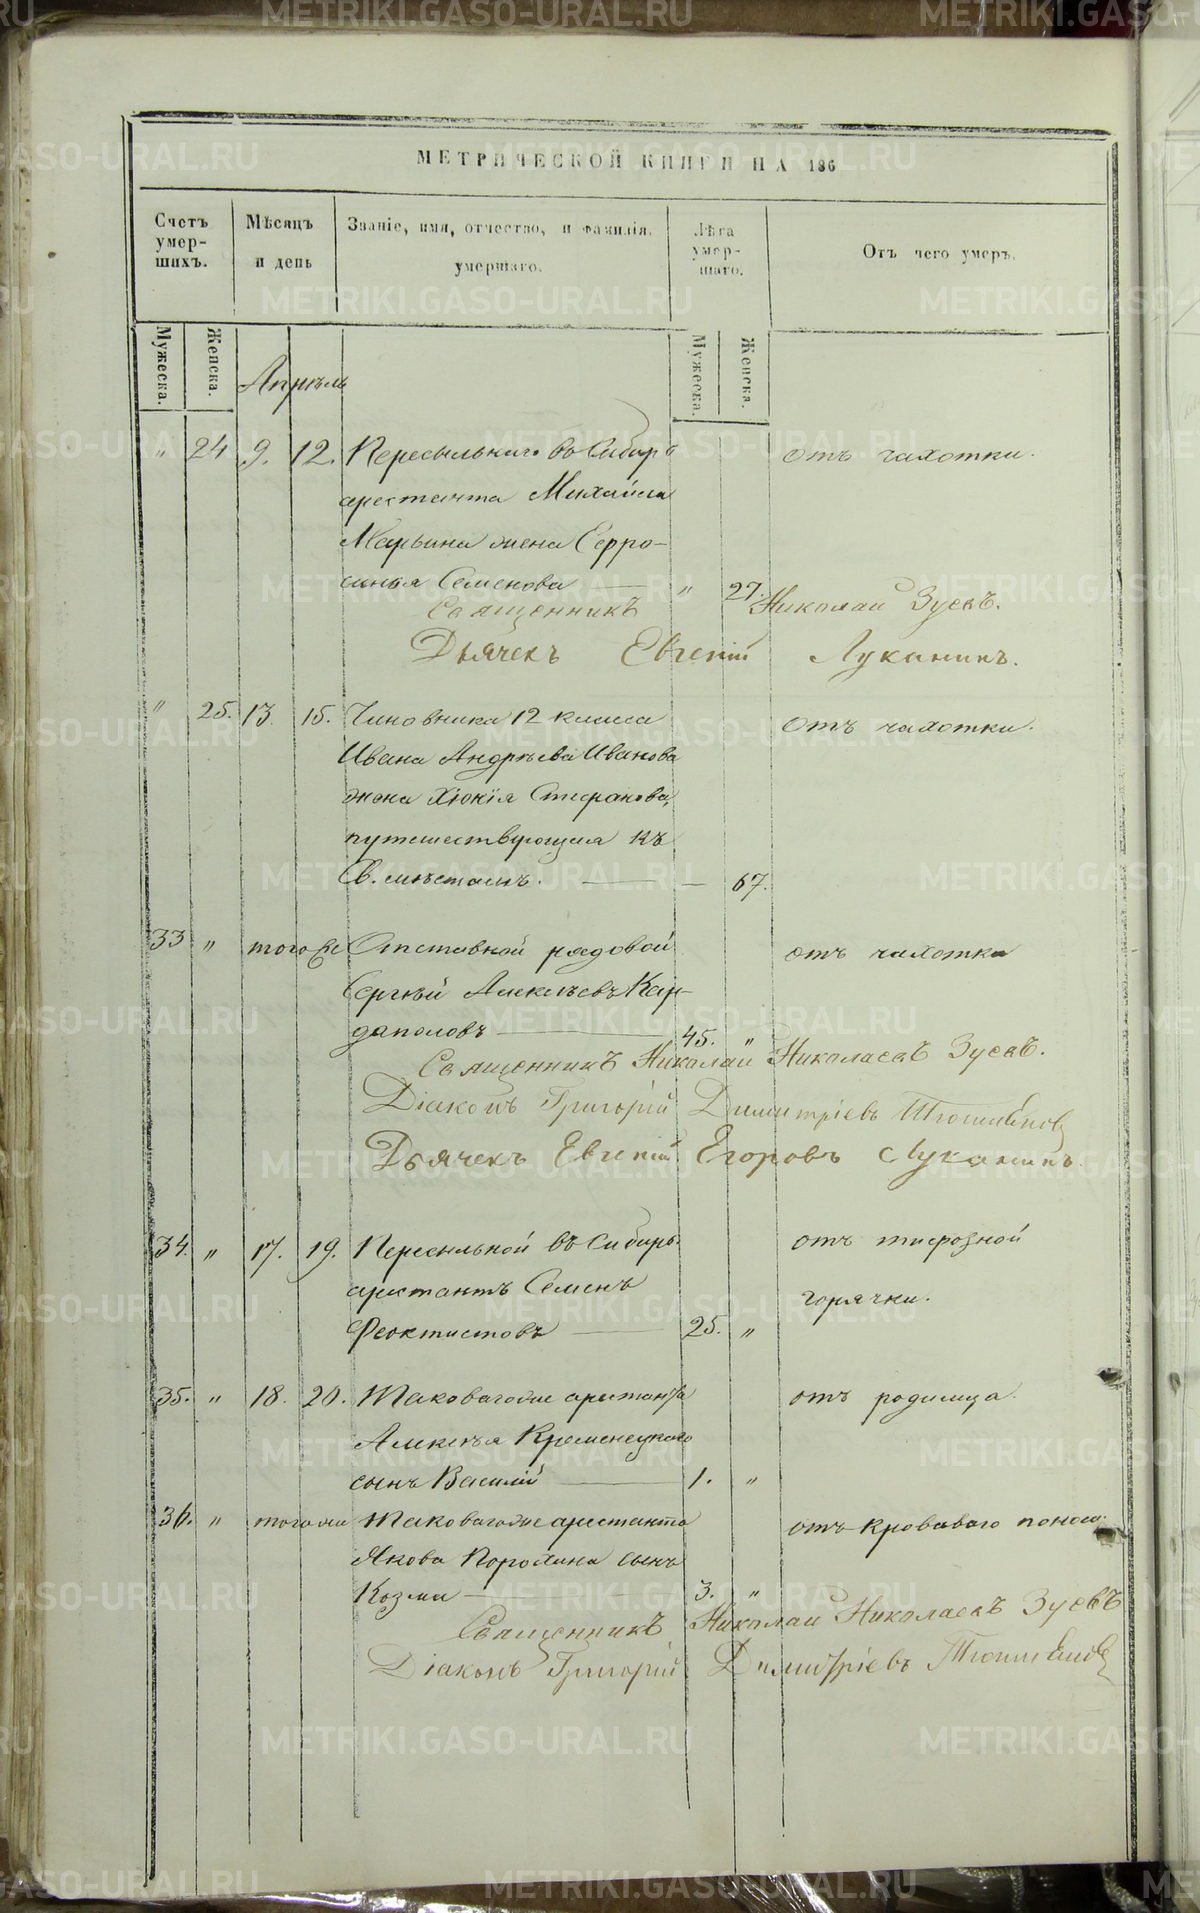 МЕТРИЧЕСКОЙ КНИГИ НА 186
Счетъ умер-шихъ.
Мѣсяцъ и день
Званіе, имя, отчество, и фамилія умершаго.
Лѣта умер-шаго.
Отъ чего умеръ.
Мужеска. Женска. Мужеска. Женска.
Апрѣль
" 24 9. 12. Пересыльнаго въ Сибирь отъ чахотки.
арестанта Михаила
Марьина жена Евфро-
синья Семенова " 27.
Священникъ Николай Зуевъ.
Дьячекъ Евгеній Луканинъ.
" 25. 13. 15. Чиновника 12 класса отъ чахотки.
Ивана Андрѣева Иванова
жена Хіонія Стефанова,
путешествующая къ
Св. мѣстамъ. — 67.
33 " того же Отставной рядовой отъ чахотки
Сергѣй Алексѣевъ Кар-
даполовъ 45. "
Священникъ Николай Николаевъ Зуевъ.
Діаконъ Григорій Димитріевъ
Дьячекъ Евгеній Егоровъ Луканинъ.
34. " 17. 19. Пересыльной въ Сибирь отъ тифозной
арестантъ Семенъ горячки.
Феоктистовъ 25. "
35. " 18. 20. Таковагоже арестанта отъ родимца.
Алексѣя Кременецкаго
сынъ Василій 1. "
36. " того же Таковагоже арестанта отъ кроваваго поноса.
Якова Порохина сынъ
Козма 3. "
Священникъ Николай Николаевъ Зуевъ
Діаконъ Григорій Димитріевъ
METRIKI.GASO-URAL.RU